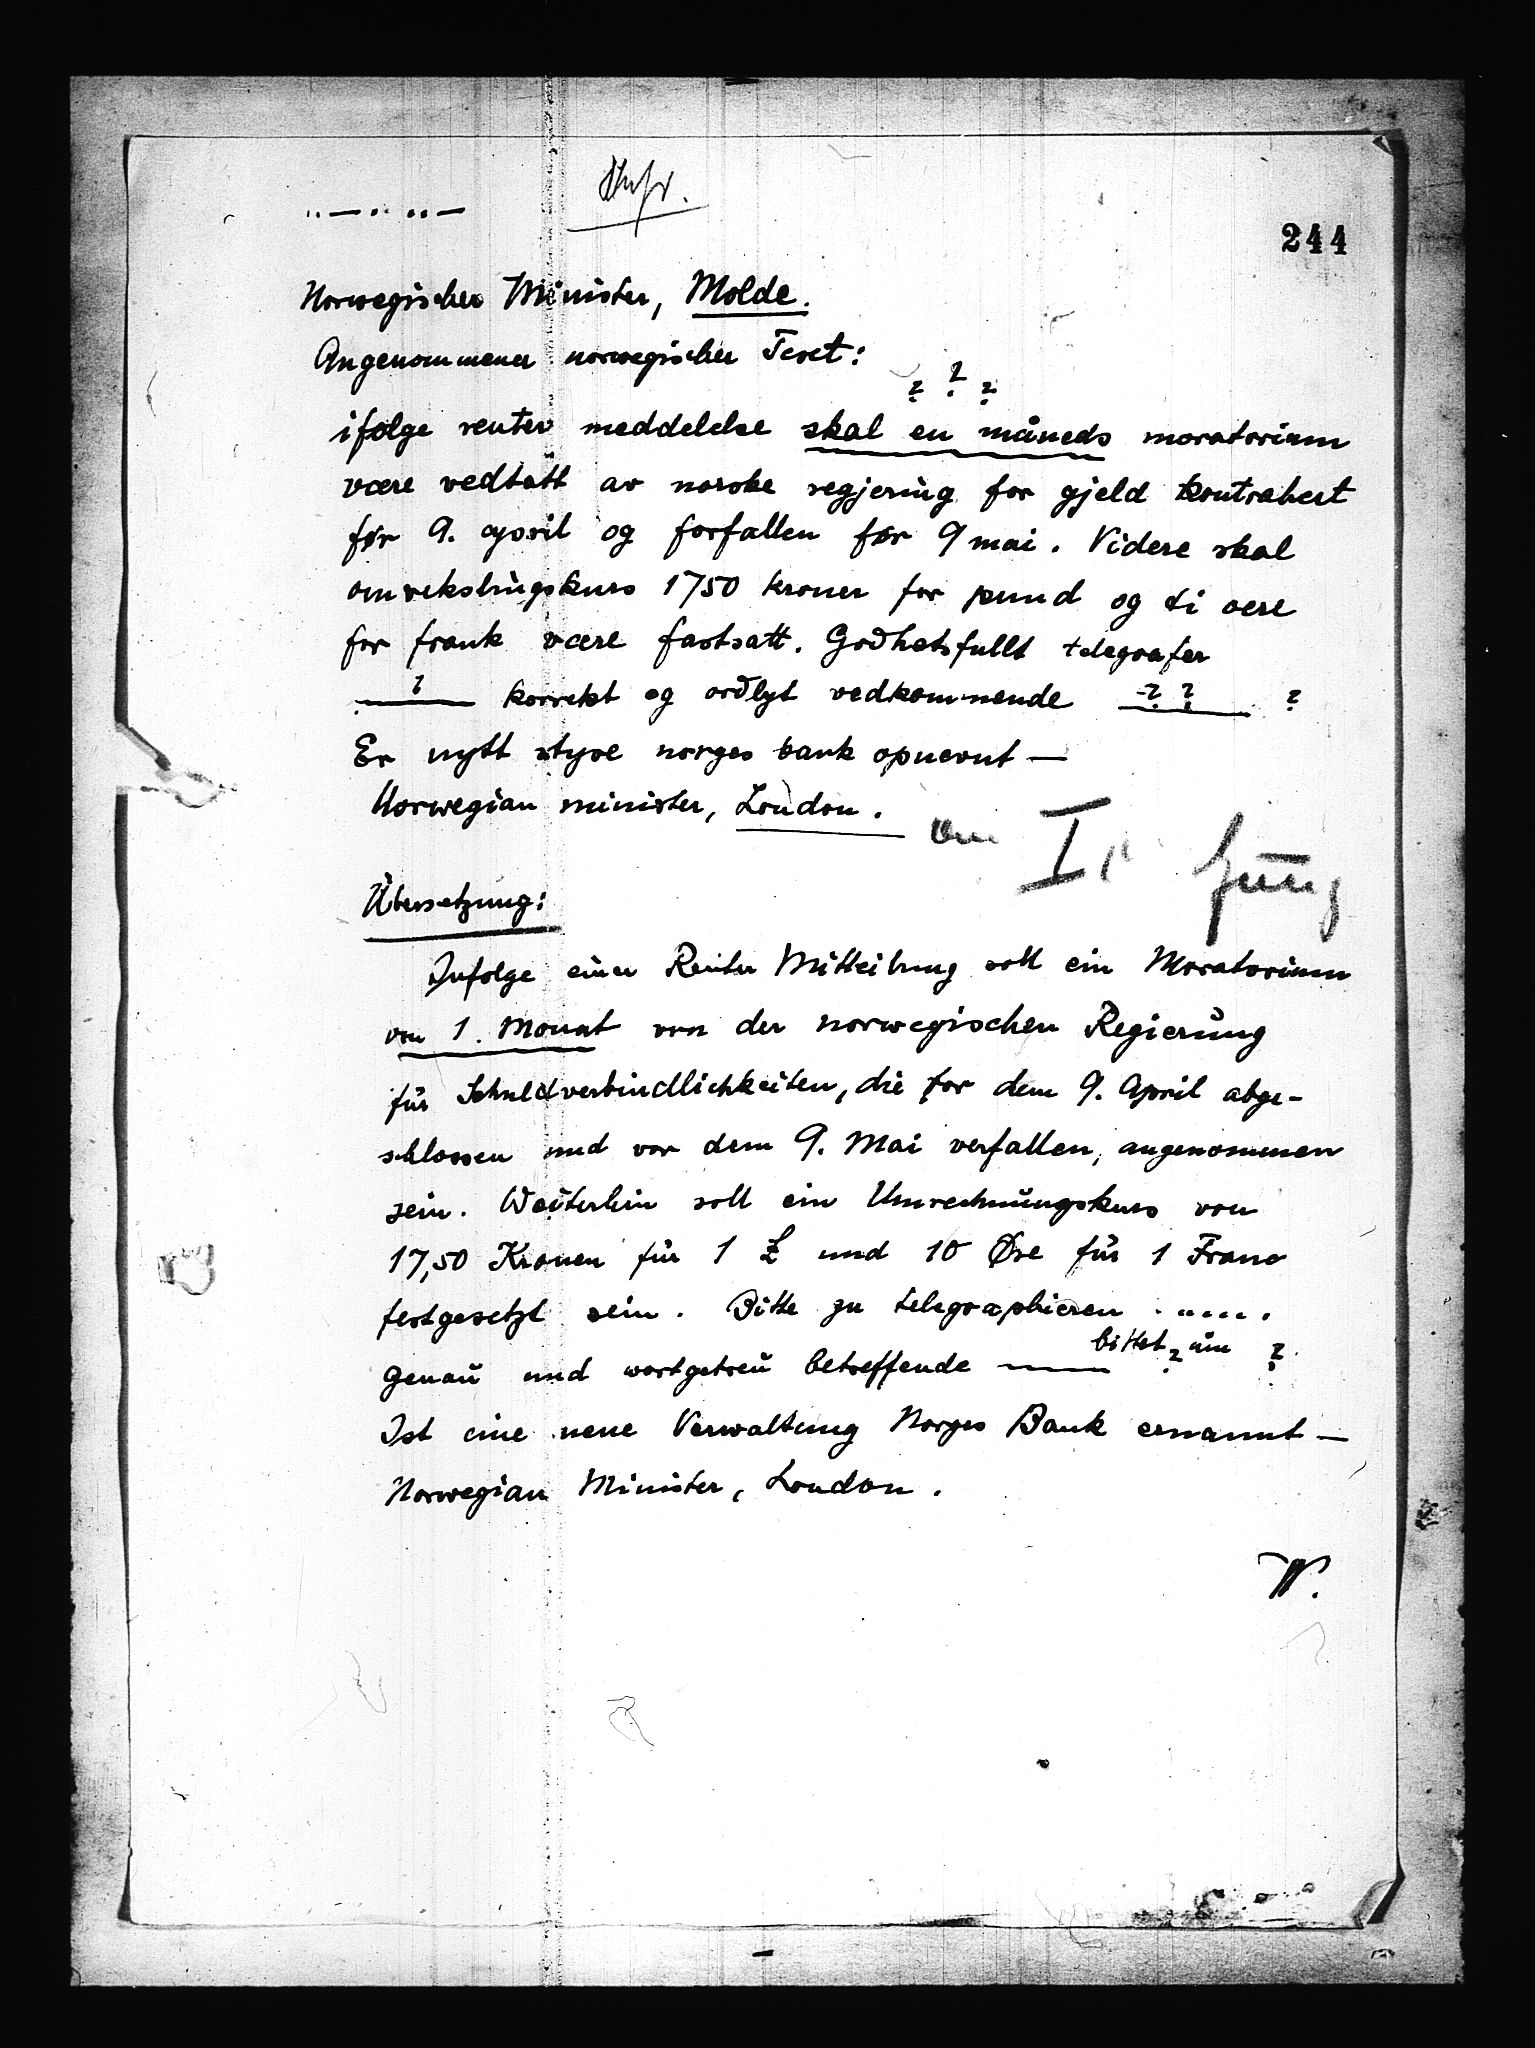 244
Norwegischer Minister, Molde.
Angenommener norwegischer Text:
? ? ?
ifølge reuter meddelelse skal en måneds moratorium
være vedtatt av norske regjering for gjeld kontrahert
før 9. april og forfallen før 9 mai. Videre skal
omvekslingskurs 1750 kroner for pund og ti oere
for frank være fastsatt. Godhetsfullt telegrafer
? korrekt og ordlyt vedkommende ? ? ?
Er nytt styre norges bank opnevnt —
Norwegian minister, London.
Übersetzung:
Infolge einer Reuter Mitteilung soll ein Moratorium
von 1. Monat von der norwegischen Regierung
für Schuldverbindlichkeiten, die vor dem 9. April abge-
schlossen und vor dem 9. Mai verfallen, angenommen
sein. Weiterhin soll ein Umrechnungskurs von
17,50 Kronen für 1 £ und 10 Øre für 1 Franc
festgesetzt sein. Bitte zu telegraphieren .....
bittet ? um ?
genau und wortgetreu betreffende ——
Ist eine neue Verwaltung Norges Bank ernannt —
Norwegian Minister, London.
W.